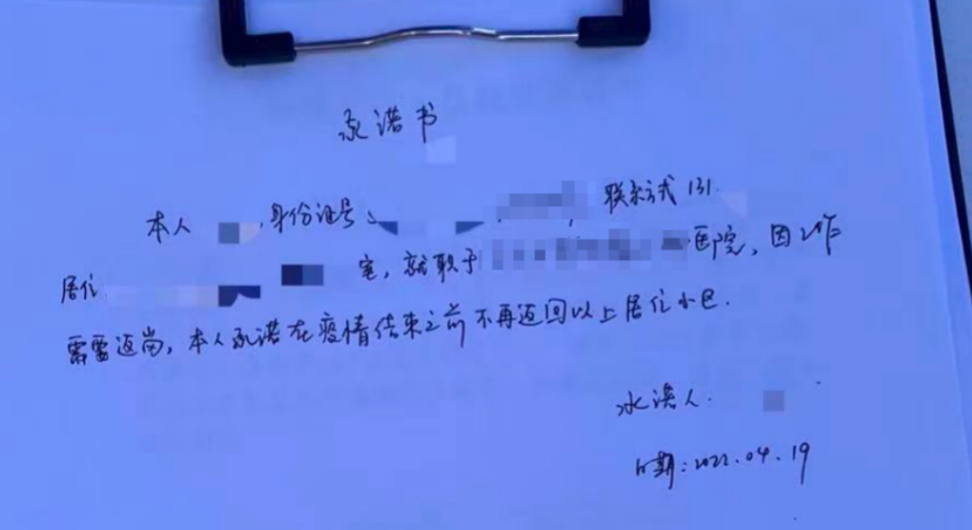 承诺书
本人 身份证号 联系方式131
居住 室，就职于 医院，因工作
需要返岗，本人承诺在疫情结束之前不再返回以上居住小区.
承诺人:
日期:2022.04.19